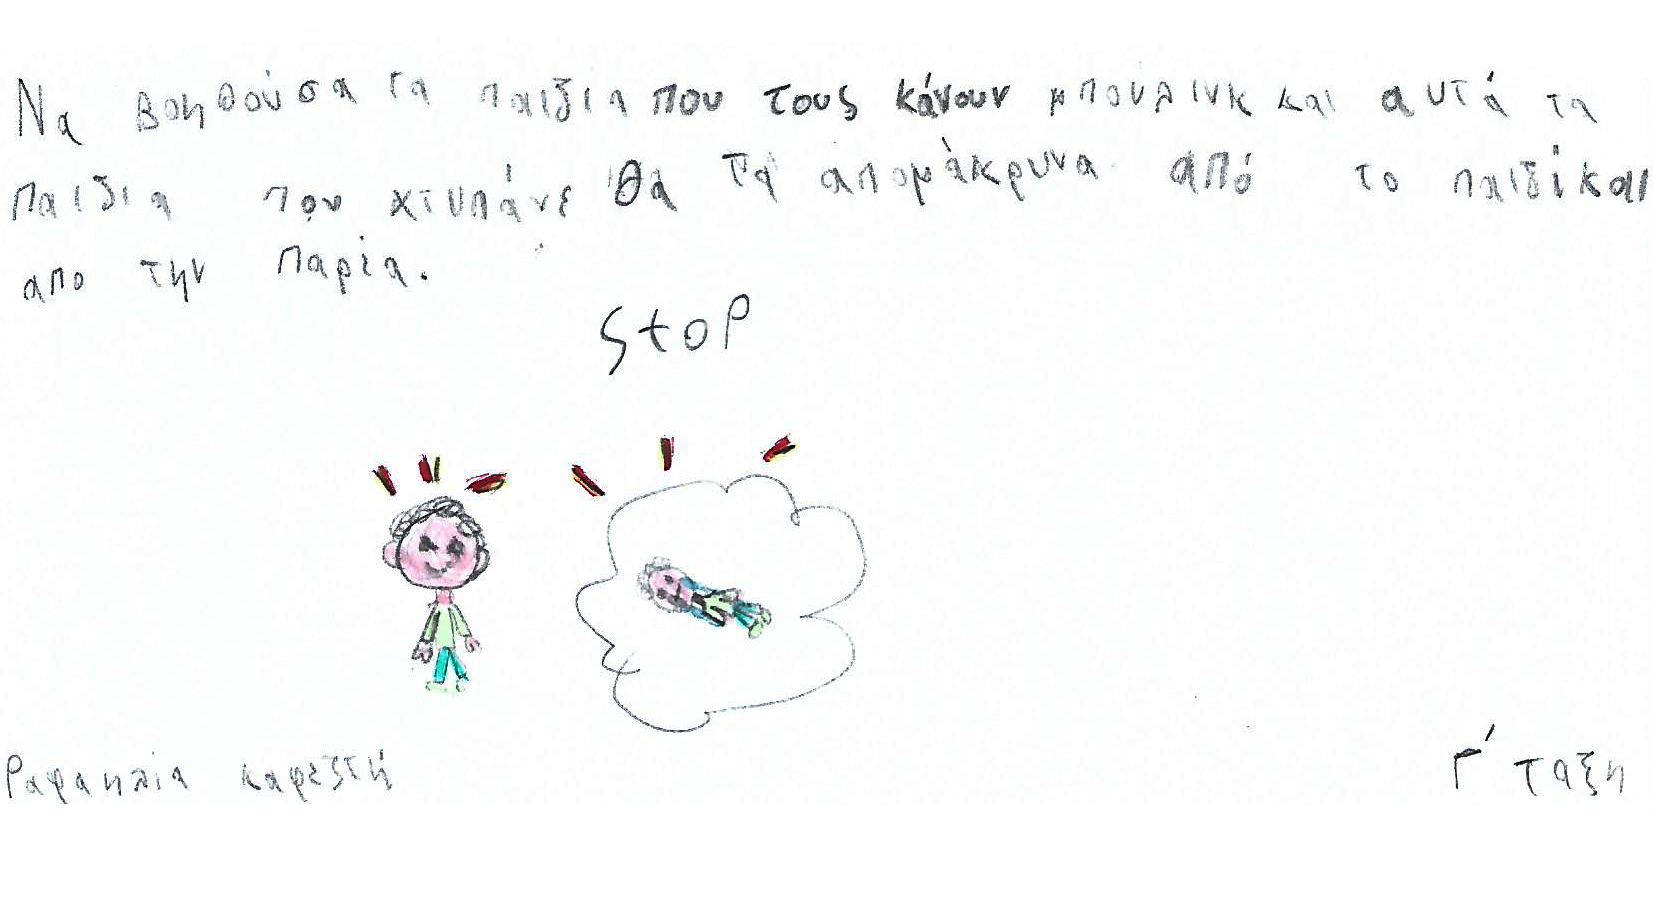 Να βοηθούσα τα παιδια που τους κάνουν μπουλινκ και αυτά τα
παιδια που χτυπάνε θα τα απομάκρυνα από το παιδί και
απο την παρέα.
stop
Ραφαηλία καφεζτή
Γ' ταξη